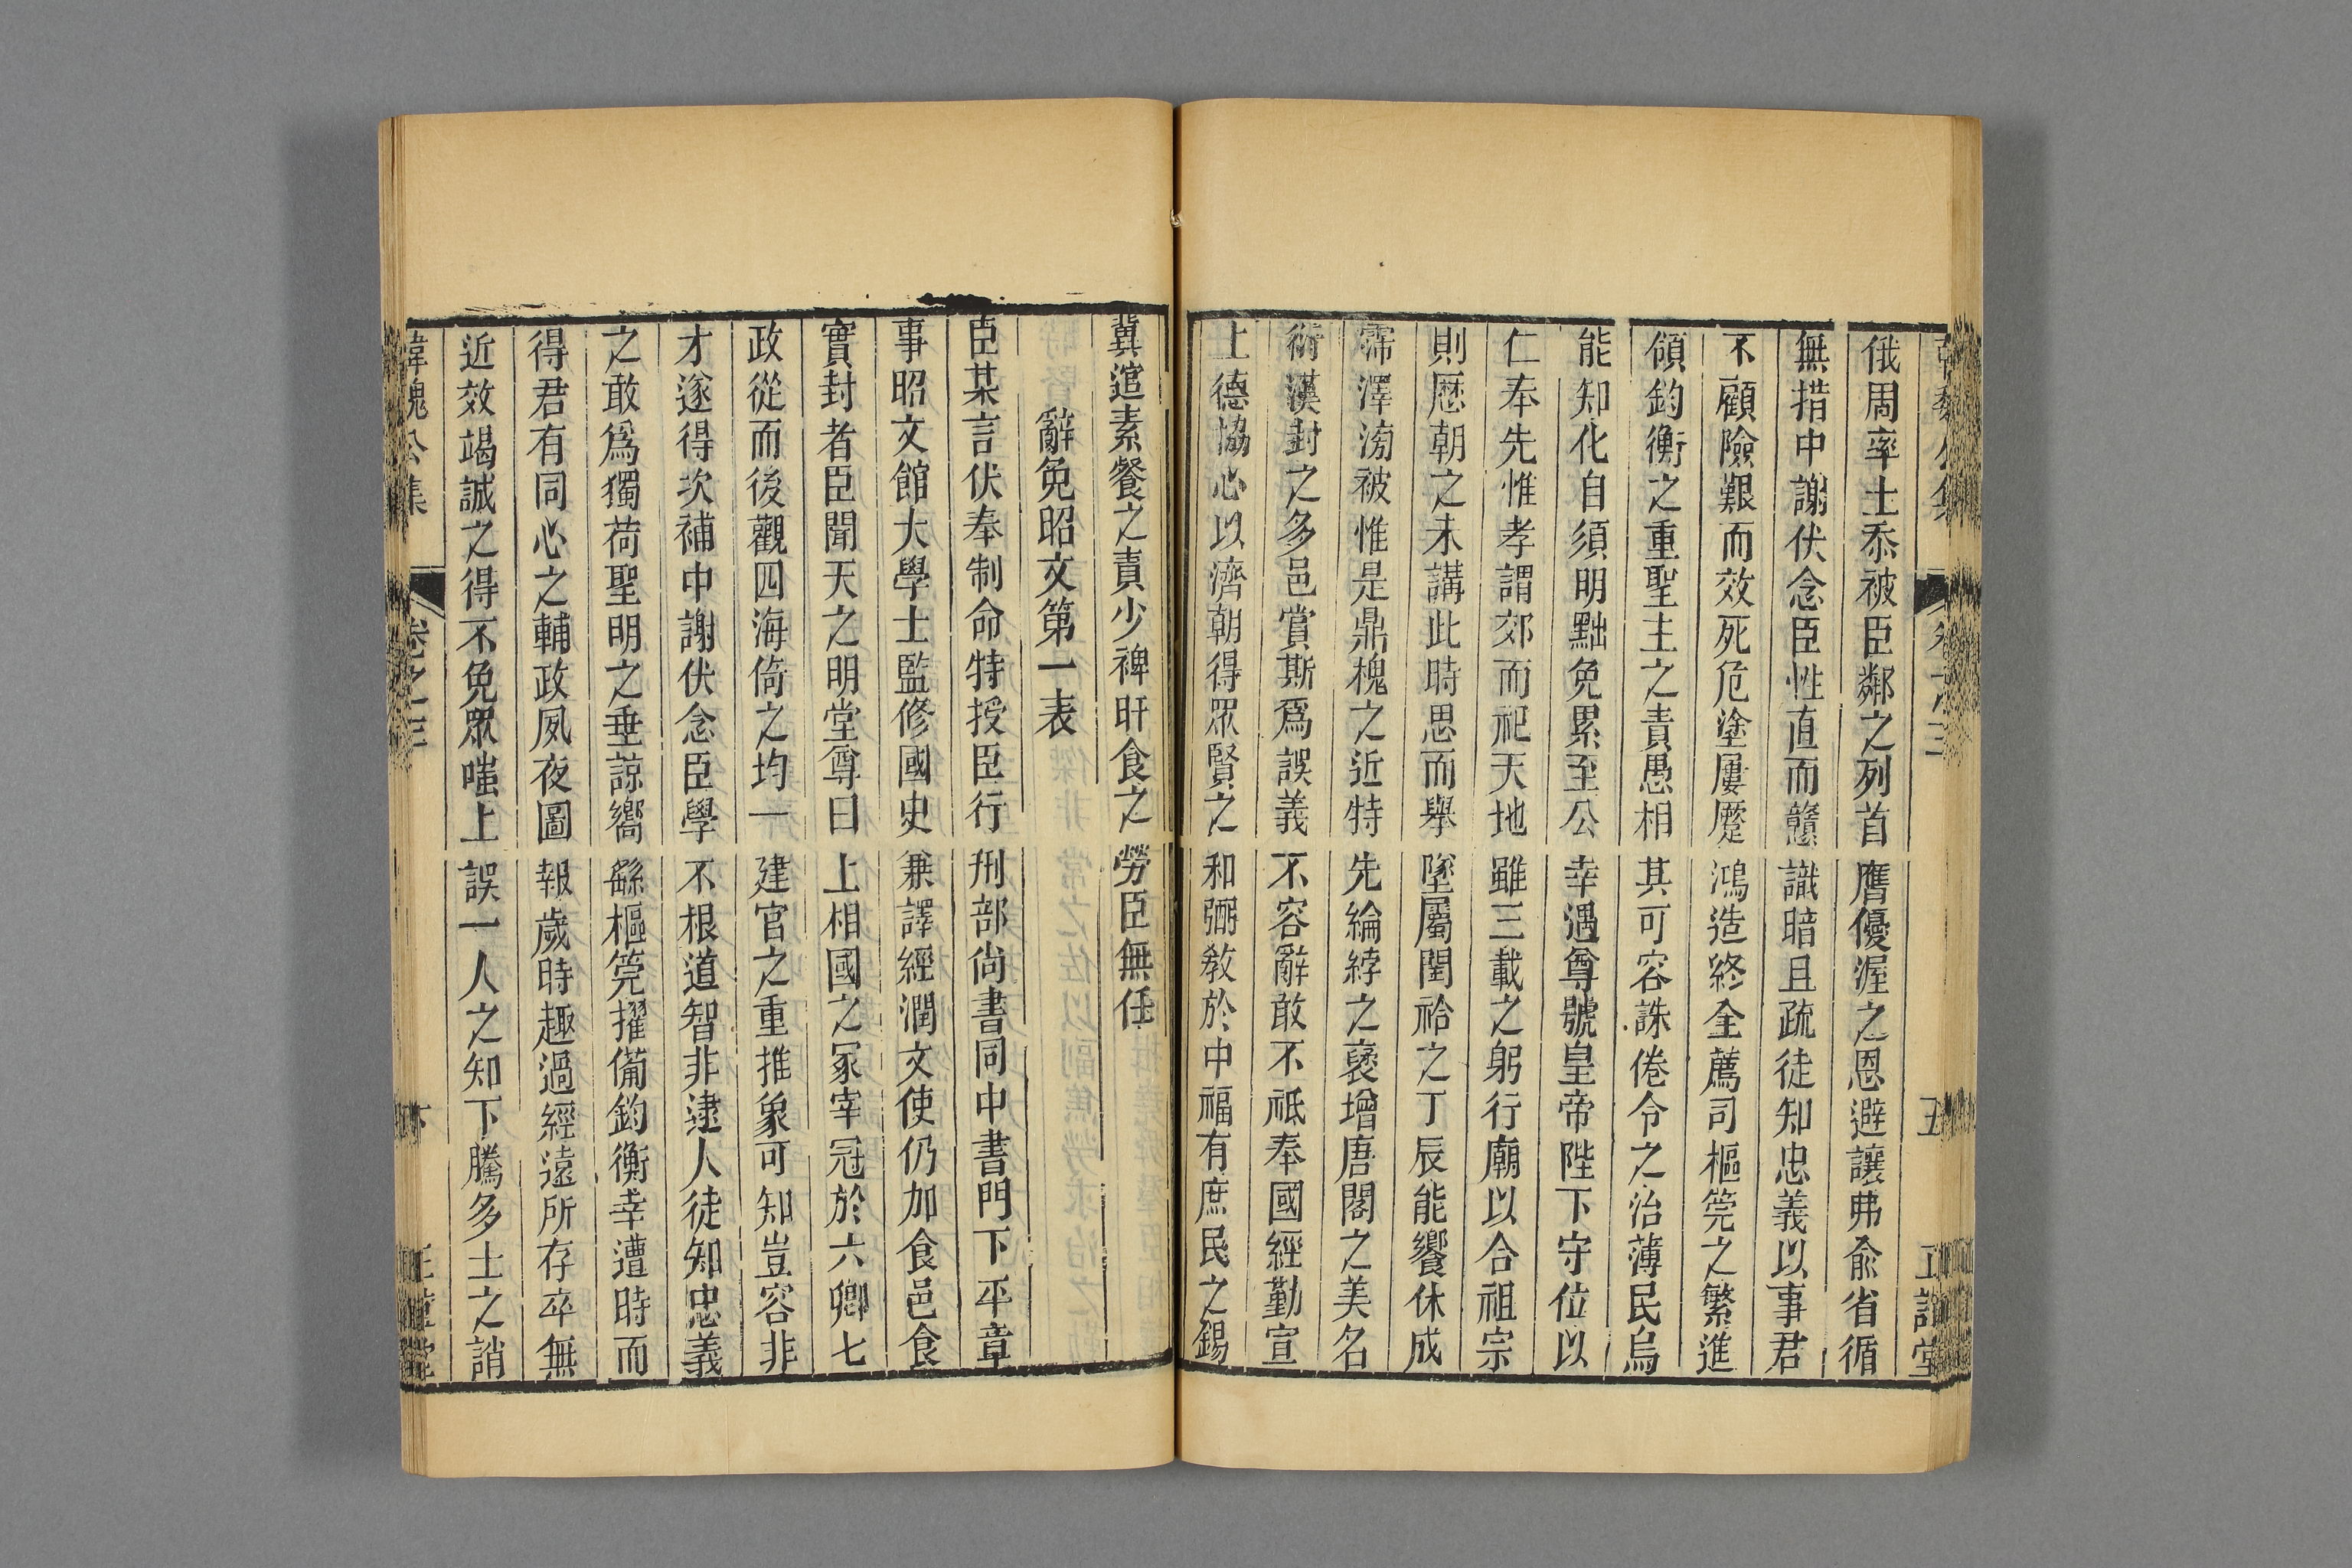 俄周率土忝被臣鄰之列首膺優渥之恩避讓弗俞省循
無措中謝伏念臣性直而戇識暗且疏徒知忠義以事君
不顧險艱而效死危塗屢歷鴻造終全薦司樞筦之繁進
領鈞衡之重聖主之責愚相其可容誅倦令之治薄民烏
能知化自須明黜免累至公幸遇尊號皇帝陛下守位以
仁奉先惟孝謂郊而祀天地雖三載之躬行廟以合祖宗
則歷朝之未講此時思而舉墜屬閏祫之丁辰能饗休成
霈澤滂被惟是鼎槐之近特先綸綍之褒增唐閣之美名
衍漢封之多邑賞斯爲誤義不容辭敢不祗奉國經勤宣
上德協心以濟朝得眾賢之和弼敎於中福有庶民之錫
冀逭素餐之責少裨旰食之勞臣無任
辭免昭文第一表
臣某言伏奉制命特授臣行刑部尚書同中書門下平章
事昭文館大學士監修國史兼譯經潤文使仍加食邑食
實封者臣聞天之明堂尊曰上相國之冢宰冠於六卿七
政從而後觀四海倚之均一建官之重推象可知豈容非
才遂得次補中謝伏念臣學不根道智非逮人徒知忠義
之敢爲獨荷聖明之垂諒嚮繇樞筦擢備鈞衡幸遭時而
得君有同心之輔政夙夜圖報歲時趣過經遠所存卒無
近效竭誠之得不免眾嗤上誤一人之知下騰多士之誚